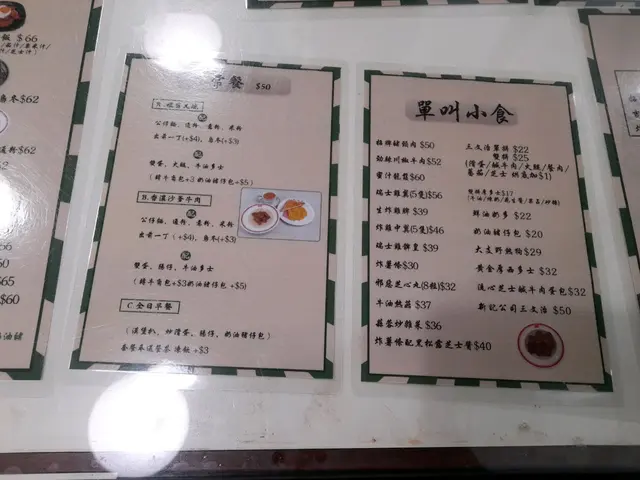 飯 $66
烏冬$62
$62
$60
$65
$60
常餐 $50
配
公仔麵、通粉、意粉、米粉
出前一丁(+$4)、烏冬(+$3)
配
雙蛋、火腿、牛油多士
(轉牛角包+3 奶油豬仔包+$5)
B.香滑沙爹牛肉
配
公仔麵、通粉、意粉、米粉
出前一丁 (+$4)、烏冬(+$3)
配
雙蛋、腸仔、牛油多士
(轉牛角包+$3奶油豬仔包 +$5)
C.全日早餐
(漢堡扒、炒滑蛋、腸仔、奶油豬仔包)
套餐奉送餐茶 凍飲 +$3
單叫小食
招牌豬頸肉$50
勁辣川椒牛肉$52
蜜汁龍鬚$60
瑞士雞翼(5隻)$56
生炸雞髀 $39
炸雞中翼(5隻)$46
瑞士雞髀皇 $39
炸薯條$30
邪惡芝心丸(8粒)$32
牛油熱蔬 $37
蒜蓉炒雜菜 $36
炸薯條配黑松露芝士醬$40
三文治單拼 $22
雙拼 $25
(滑蛋/鹹牛肉/火腿/餐肉/
蕃茄/芝士 烘底加$1)
$17
鮮油奶多 $22
奶油豬仔包 $20
大支野熱狗$29
黃金厚西多士 $32
流心芝士鹹牛肉蛋包$32
新記公司三文治 $50